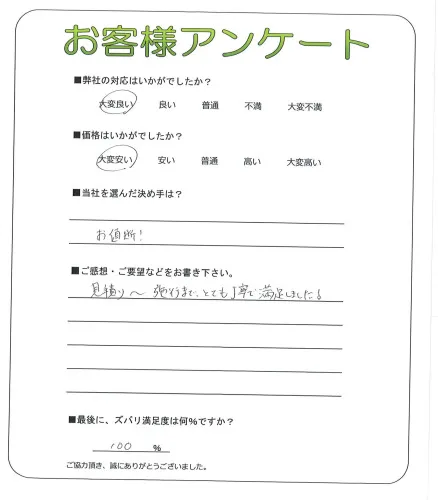 お客様アンケート
■弊社の対応はいかがでしたか？
大変良い 良い 普通 不満 大変不満
■価格はいかがでしたか？
大変安い 安い 普通 高い 大変高い
■当社を選んだ決め手は？
お値断!
■ご感想・ご要望などをお書き下さい。
見積り〜 まで、とても丁寧で満足しました!
■最後に、ズバリ満足度は何％ですか？
100 %
ご協力頂き、誠にありがとうございました。